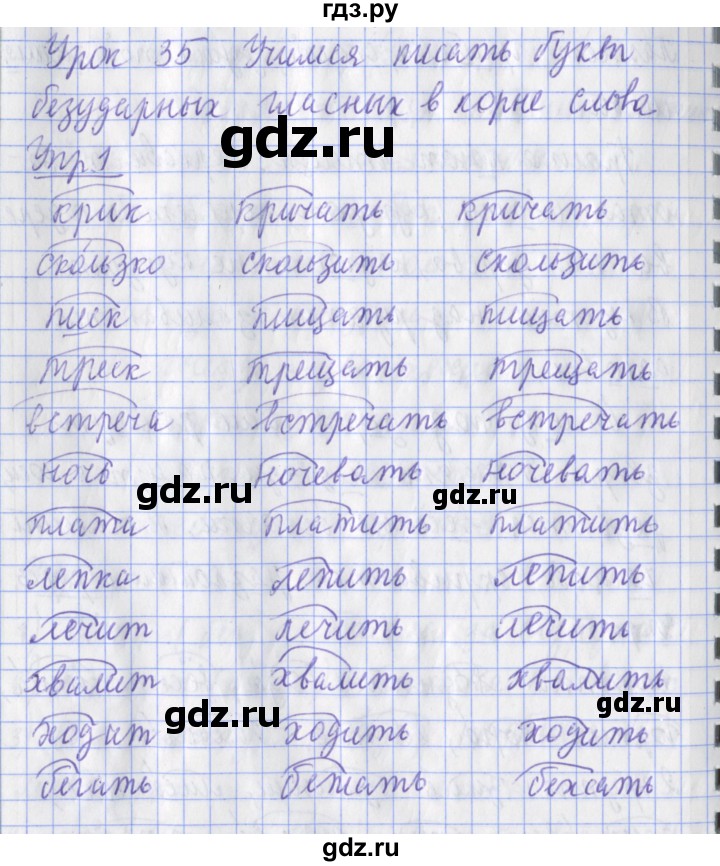 гдз.ру
Урок 35 Учимся писать букв
безударных гласных в корне слова
gdz.ru
Упр.1
крик кричать кричать
скользко скользить скользить
писк пищать пищать
треск трещать трещать
встреча встречать встречать
ночь ночевать ночевать
gdz.ru gdz.ru
плата платить платить
лепка лепить лепить
лечит лечить лечить
хвалит хвалить хвалить
gdz.ru gdz.ru
ходит ходить ходить
бегать бежать бежать